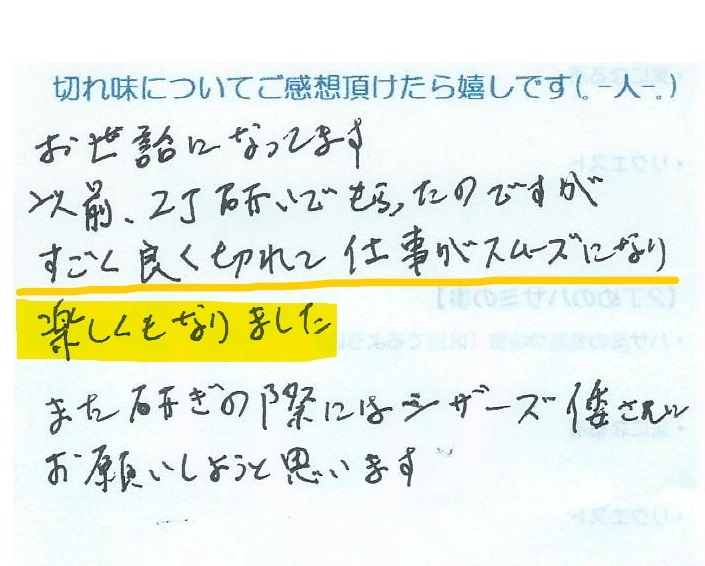 切れ味についてご感想頂けたら嬉しです(。-人-。)
お世話になってます
以前、2丁研いでもらったのですが
すごく良く切れて仕事がスムーズになり
楽しくもなりました
また研ぎの際にはシザーズ倭さんに
お願いしようと思います